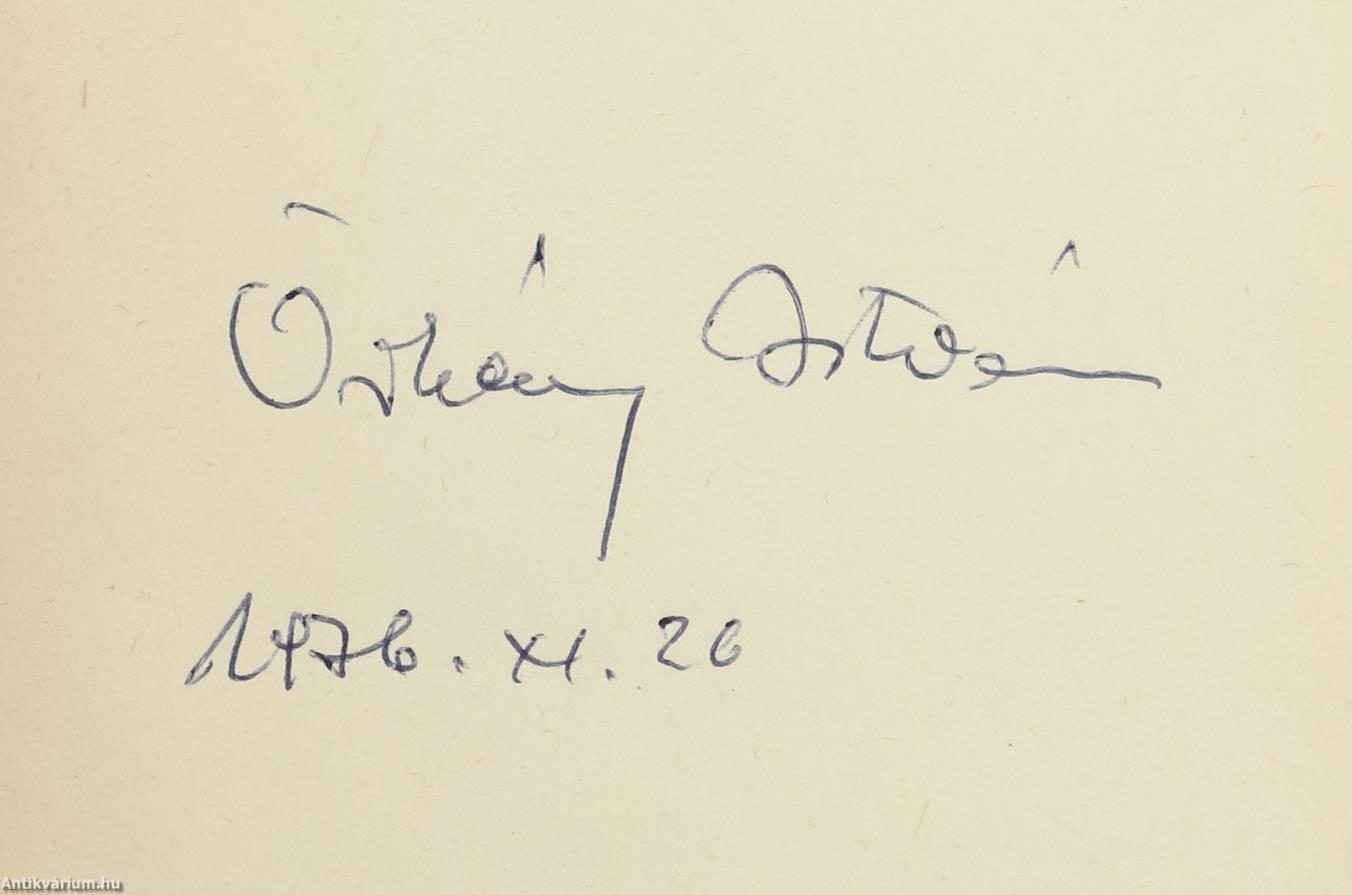 Örkény István
1976. XI. 26
Antikvárium.hu